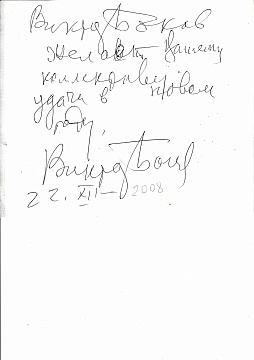 Виктор Боков
желает вашему
коллективу
удачи в новом
году,
Виктор Боков
22. XII — 2008